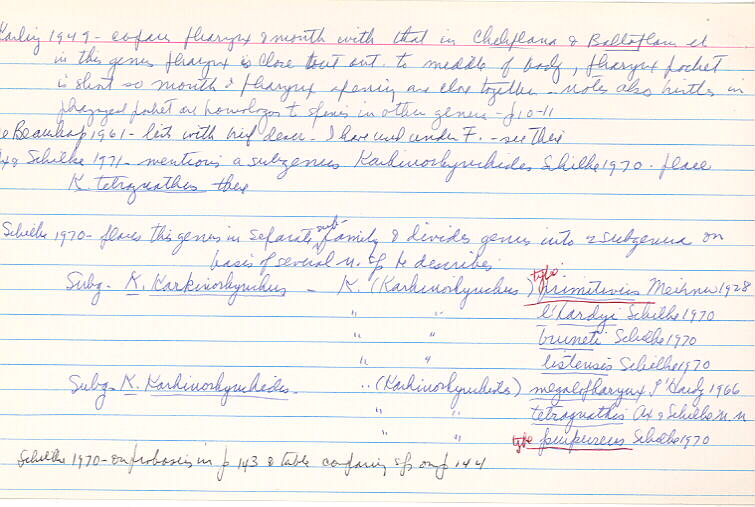 Karling 1949 - compares pharynx & mouth with that in Cheliplana & Baltoplana etc
in this genus pharynx is close to ant. to middle of body, pharynx pocket
is short so mouth & pharynx opening are close together - notes also bristles in
pharyngeal pocket are homologous to spines in other genera - p 10-11
Beauchamp 1961 - lists with brief descr. - I have under F. - see this
Ax & Schilke 1971 - mentions a subgenus Karkinorhynchides Schilke 1970 - place
K. tetragnathus there
Schilke 1970 - places this genus in separate sub-family & divides genus into 2 subgenera on
basis of several n. sp he describes
Subg. K. Karkinorhynchus - K. (Karkinorhynchus) type primitivus Meixner 1928
" " l'hardyi Schilke 1970
" " bruneti Schilke 1970
" " listensis Schilke 1970
Subg. K. Karkinorhynchides - .. (Karkinorhynchides) megalopharynx L'Hardy 1966
" " tetragnathis Ax & Schilke m.m
" " type purpureus Schilke 1970
Schilke 1970 - on proboscis in p 143 & table comparing sps on p 144